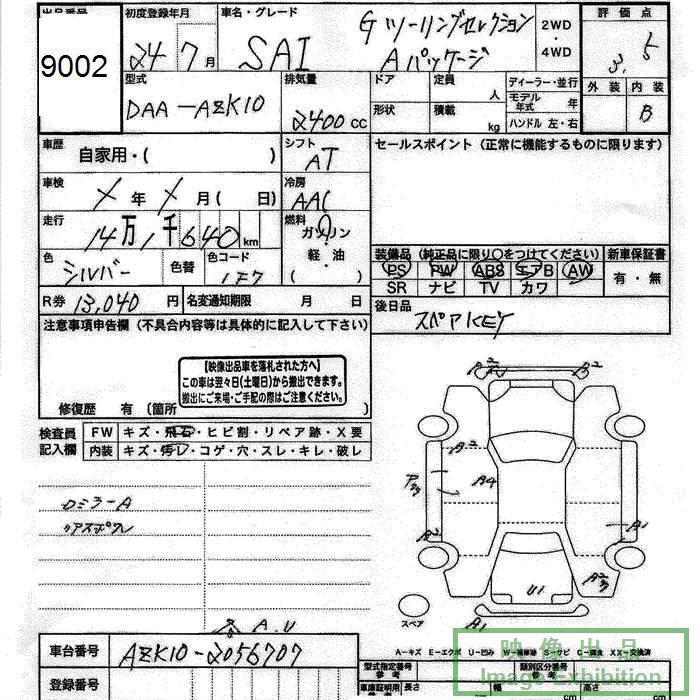 出品番号 9002
初度登録年月 24 7月
車名・グレード SAI Gツーリングセレクション
Aパッケージ
2WD・4WD
評価点 3.5
外装 内装 B
型式 DAA-AZK10
排気量 2400 cc
ドア 定員 人
形状 積載 kg
ディーラー・並行
モデル年式 年
ハンドル 左・右
車歴 自家用・( )
シフト AT
セールスポイント (正常に機能するものに限ります)
車検 年 月( 日)
冷房 AAC
走行 14万1千640km
燃料 ガソリン・軽油・( )
色 シルバー 色替 色コード 1F7
装備品 (純正品に限り○をつけてください) 新車保証書
PS PW ABS エアB AW 有・無
SR ナビ TV カワ
R券 13,040円 名変通知期限 月 日
後日品 スペアKEY
注意事項申告欄 (不具合内容等は具体的に記入して下さい)
【映像出品車を落札された方へ】
この車は翌々日(土曜日)から搬出できます。
搬出にご来場・ご手配の際はご注意ください。
修復歴 有 〔箇所 〕
検査員記入欄 FW キズ・飛石・ヒビ割・リペア跡・X要
内装 キズ・汚レ・コゲ・穴・スレ・キレ・破レ
A2
A2
A4
A2
A1
U1
A1
スペア
A.U
A-キズ E-エクボ U-凹み W-補修跡 S-サビ C-腐食 XX-交換済
車台番号 AZK10-2056707
型式指定番号 参考
類別区分番号 参考
登録番号
長さ cm 幅 cm 高さ cm
映像出品
Image Exhibition